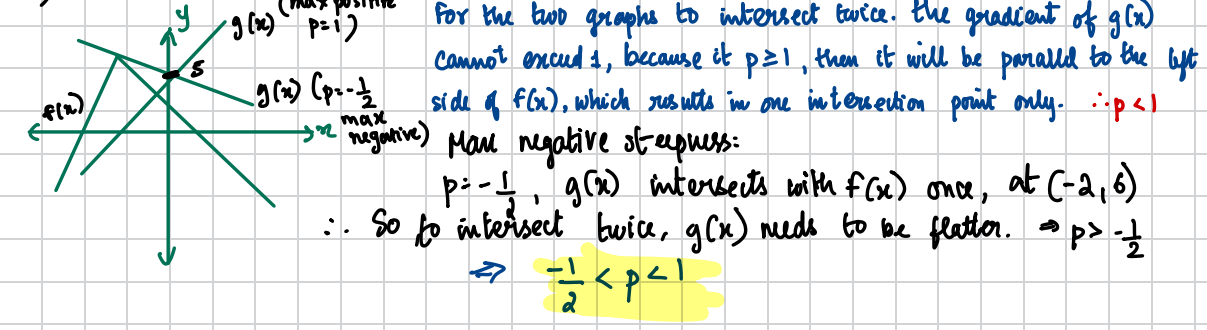 y
g(x) (max positive
p=1)
5
f(x)
g(x) (p=-1/2
max
negative)
x
For the two graphs to intersect twice. the gradient of g(x)
cannot exceed 1, because if p≥1, then it will be parallel to the left
side of f(x), which results in one intersection point only. ∴p<1
Max negative steepness:
p=-1/2, g(x) intersects with f(x) once, at (-2,6)
∴ So to intersect twice, g(x) needs to be flatter. ⇒ p> -1/2
⇔ -1/2 < p < 1